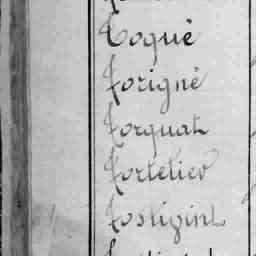 Toqué
Torigné
Torquat
Tortelier
Tostigint